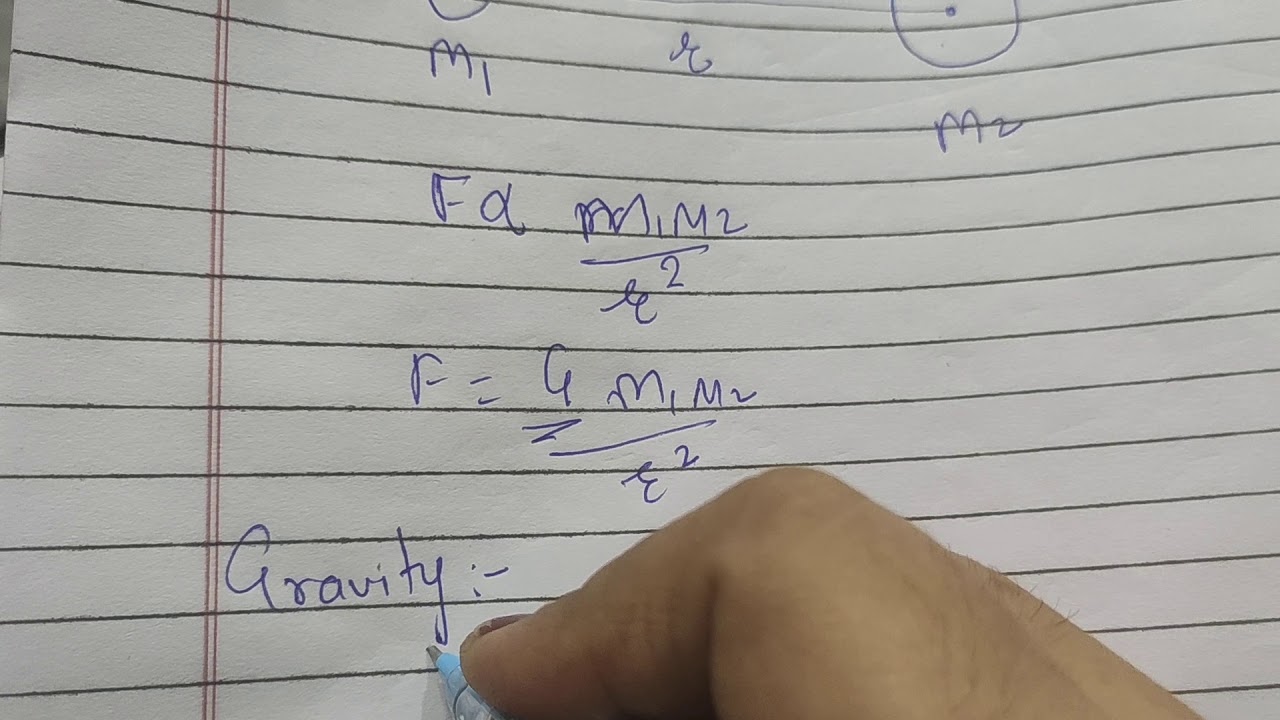 m1 r
m2
F α m1m2
r²
F = G m1m2
r²
Gravity :-